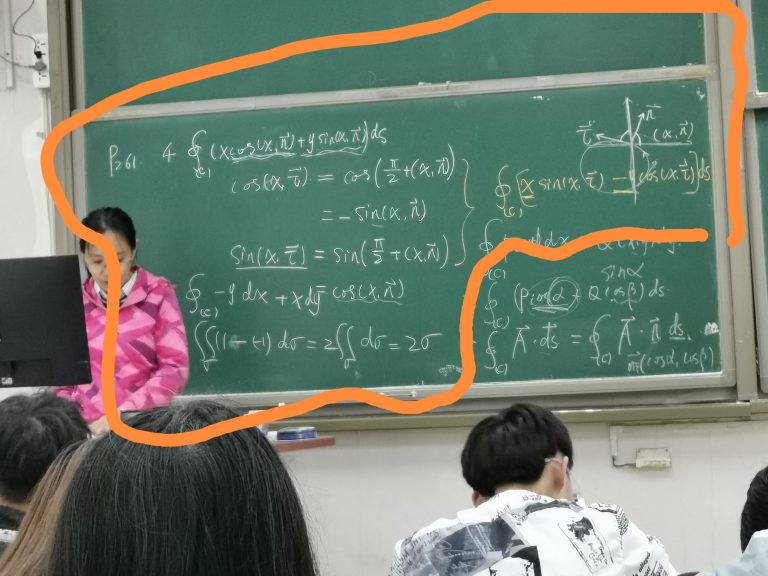 P261. 4 ∮(c) (x cos(x,n⃗)+y sin(x,n⃗))ds
cos(x,τ⃗) = cos(π/2+(x,n⃗))
= -sin(x,n⃗)
sin(x,τ⃗) = sin(π/2+(x,n⃗))
cos(x,n⃗)
∮(c) -y dx + x dy
∬σ(1-(-1)) dσ = 2∬σ dσ = 2σ
n⃗
τ⃗
(x,n⃗)
∮(c) [x sin(x,τ⃗) - y cos(x,τ⃗)]ds
∮(c)
sinα
∮(c) (P cosα Q cosβ) ds
∮(c) A⃗·ds⃗ = ∮(c) A⃗·n⃗ ds
(cosα, cosβ)